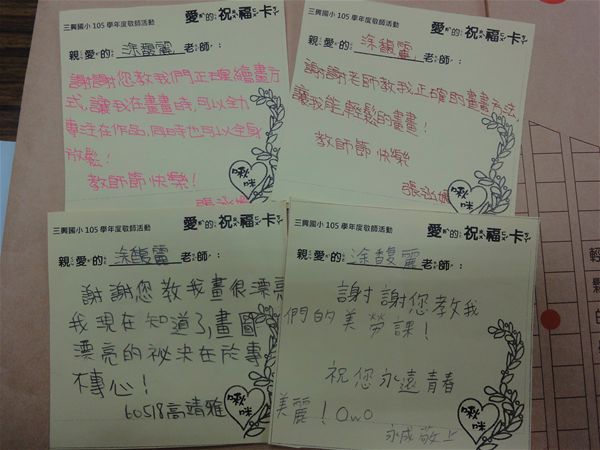 三興國小 105 學年度敬師活動
愛的祝福卡
親愛的 涂馥麗 老師：
謝謝您教我們正確繪畫方
式，讓我在畫畫時，可以全力
專注在作品，同時也可以全身
放鬆！
教師節快樂！
啾咪
三興國小 105 學年度敬師活動
愛的祝福卡
親愛的 涂馥麗 老師：
謝謝老師教我正確的畫畫方法，
讓我能輕鬆的畫畫！
教師節快樂
啾咪
三興國小 105 學年度敬師活動
愛的祝福卡
親愛的 涂馥麗 老師：
謝謝您教我畫很漂亮
我現在知道了，畫圖
漂亮的祕決在於專
專心！
60518高靖雅
啾咪
三興國小 105 學年度敬師活動
愛的祝福卡
親愛的 涂馥麗 老師：
謝謝您教我
們的美勞課！
祝您永遠青春
美麗！OwO
敬上
啾咪